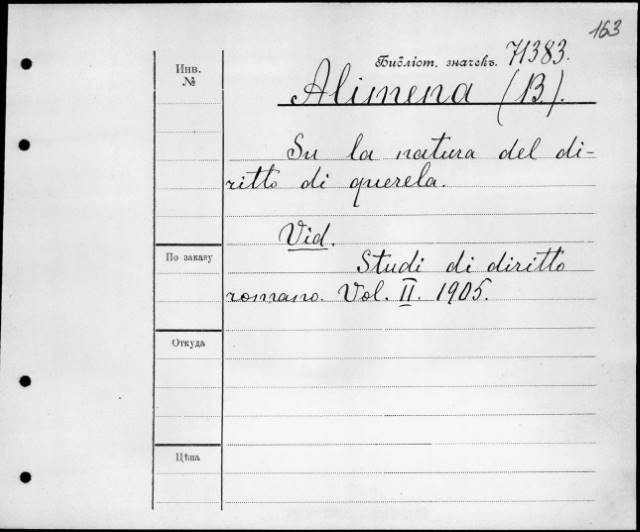 163
Библіот. значекъ. 71383.
Инв.
№
Alimena (B.).
Su la natura del di-
ritto di querela.
Vid.
По заказу
Studi di diritto
romano. Vol. II. 1905.
Откуда
Цѣна